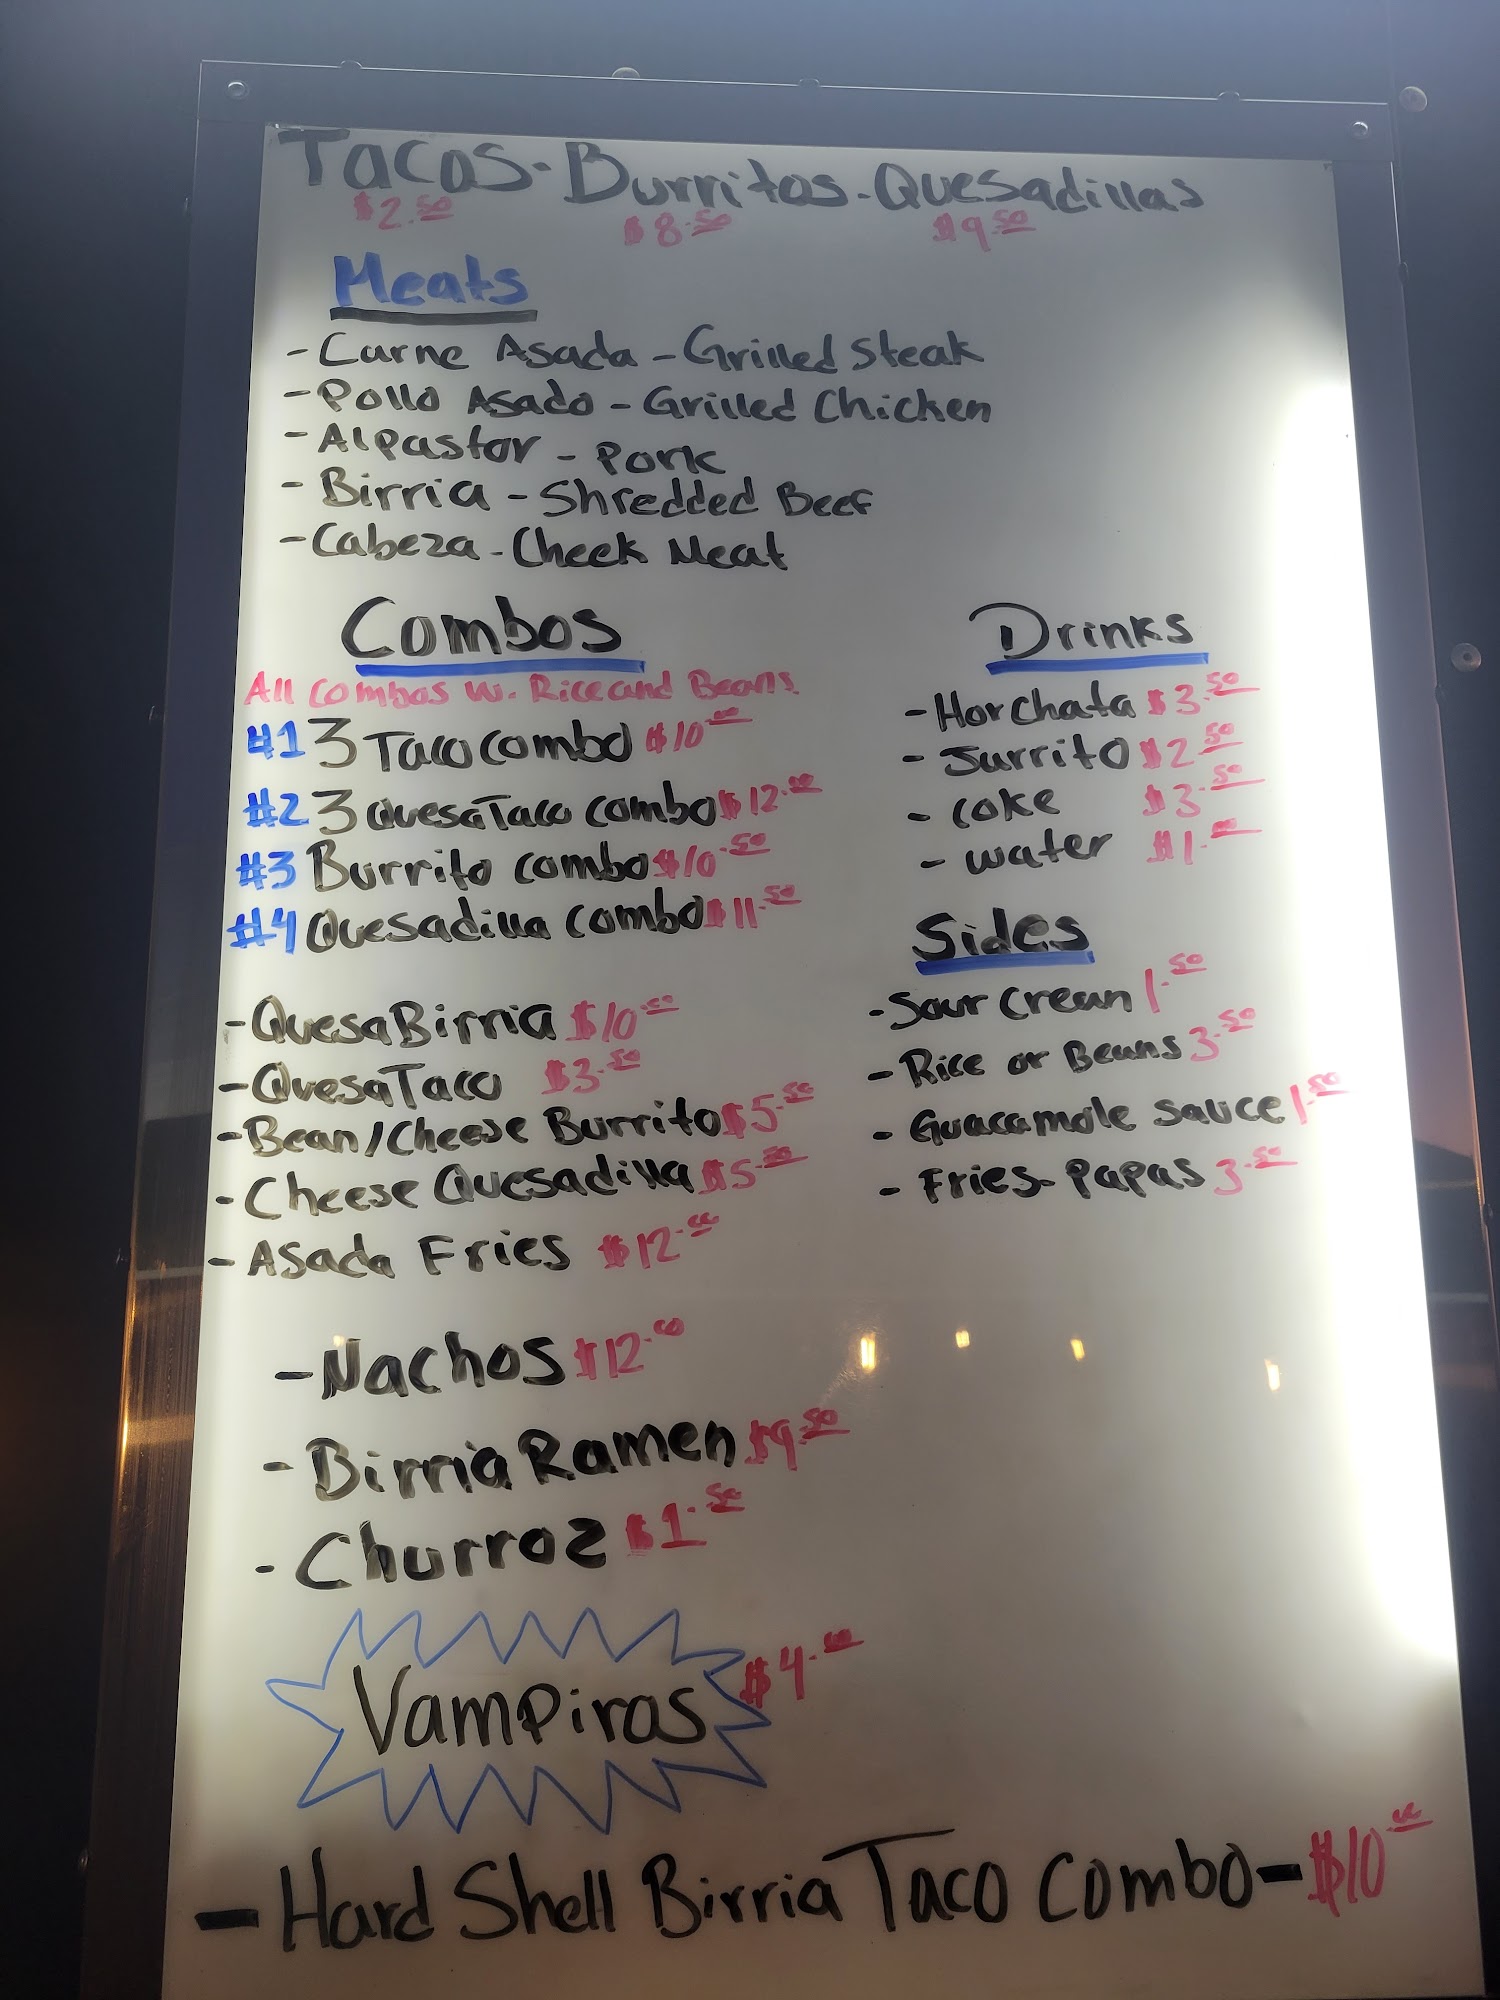 Tacos - Burritos - Quesadillas
$2.50 $8.50 $9.50
Meats
- Carne Asada - Grilled Steak
- Pollo Asado - Grilled Chicken
- Al pastor - Pork
- Birria - Shredded Beef
- Cabeza - Cheek Meat
Combos
All combos w. Rice and Beans
#1 3 Taco combo $10.00
#2 3 QuesaTaco combo $12.00
#3 Burrito combo $10.50
#4 Quesadilla combo $11.50
- QuesaBirria $10.00
- QuesaTaco $3.50
- Bean/Cheese Burrito $5.50
- Cheese Quesadilla $5.50
- Asada Fries $12.00
- Nachos $12.00
- Birria Ramen $9.50
- Churroz $1.50
Drinks
- Horchata $3.50
- Jurrito $2.50
- coke $3.50
- water $1.00
Sides
- Sour Cream 1.50
- Rice or Beans 3.50
- Guacamole sauce 1.50
- Fries-Papas 3.50
Vampiros $4.00
- Hard Shell Birria Taco Combo - $10.00